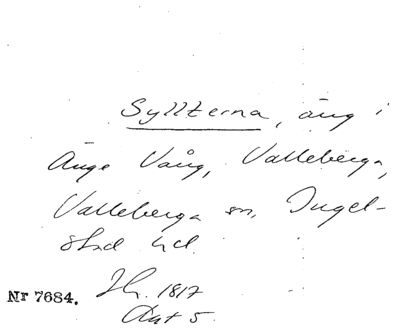 Syllterna, äng i
Änge Vång, Valleberga,
Valleberga sn, Ingel-
stad hd.
Nr 7684. Sk. 1817
Akt 5.